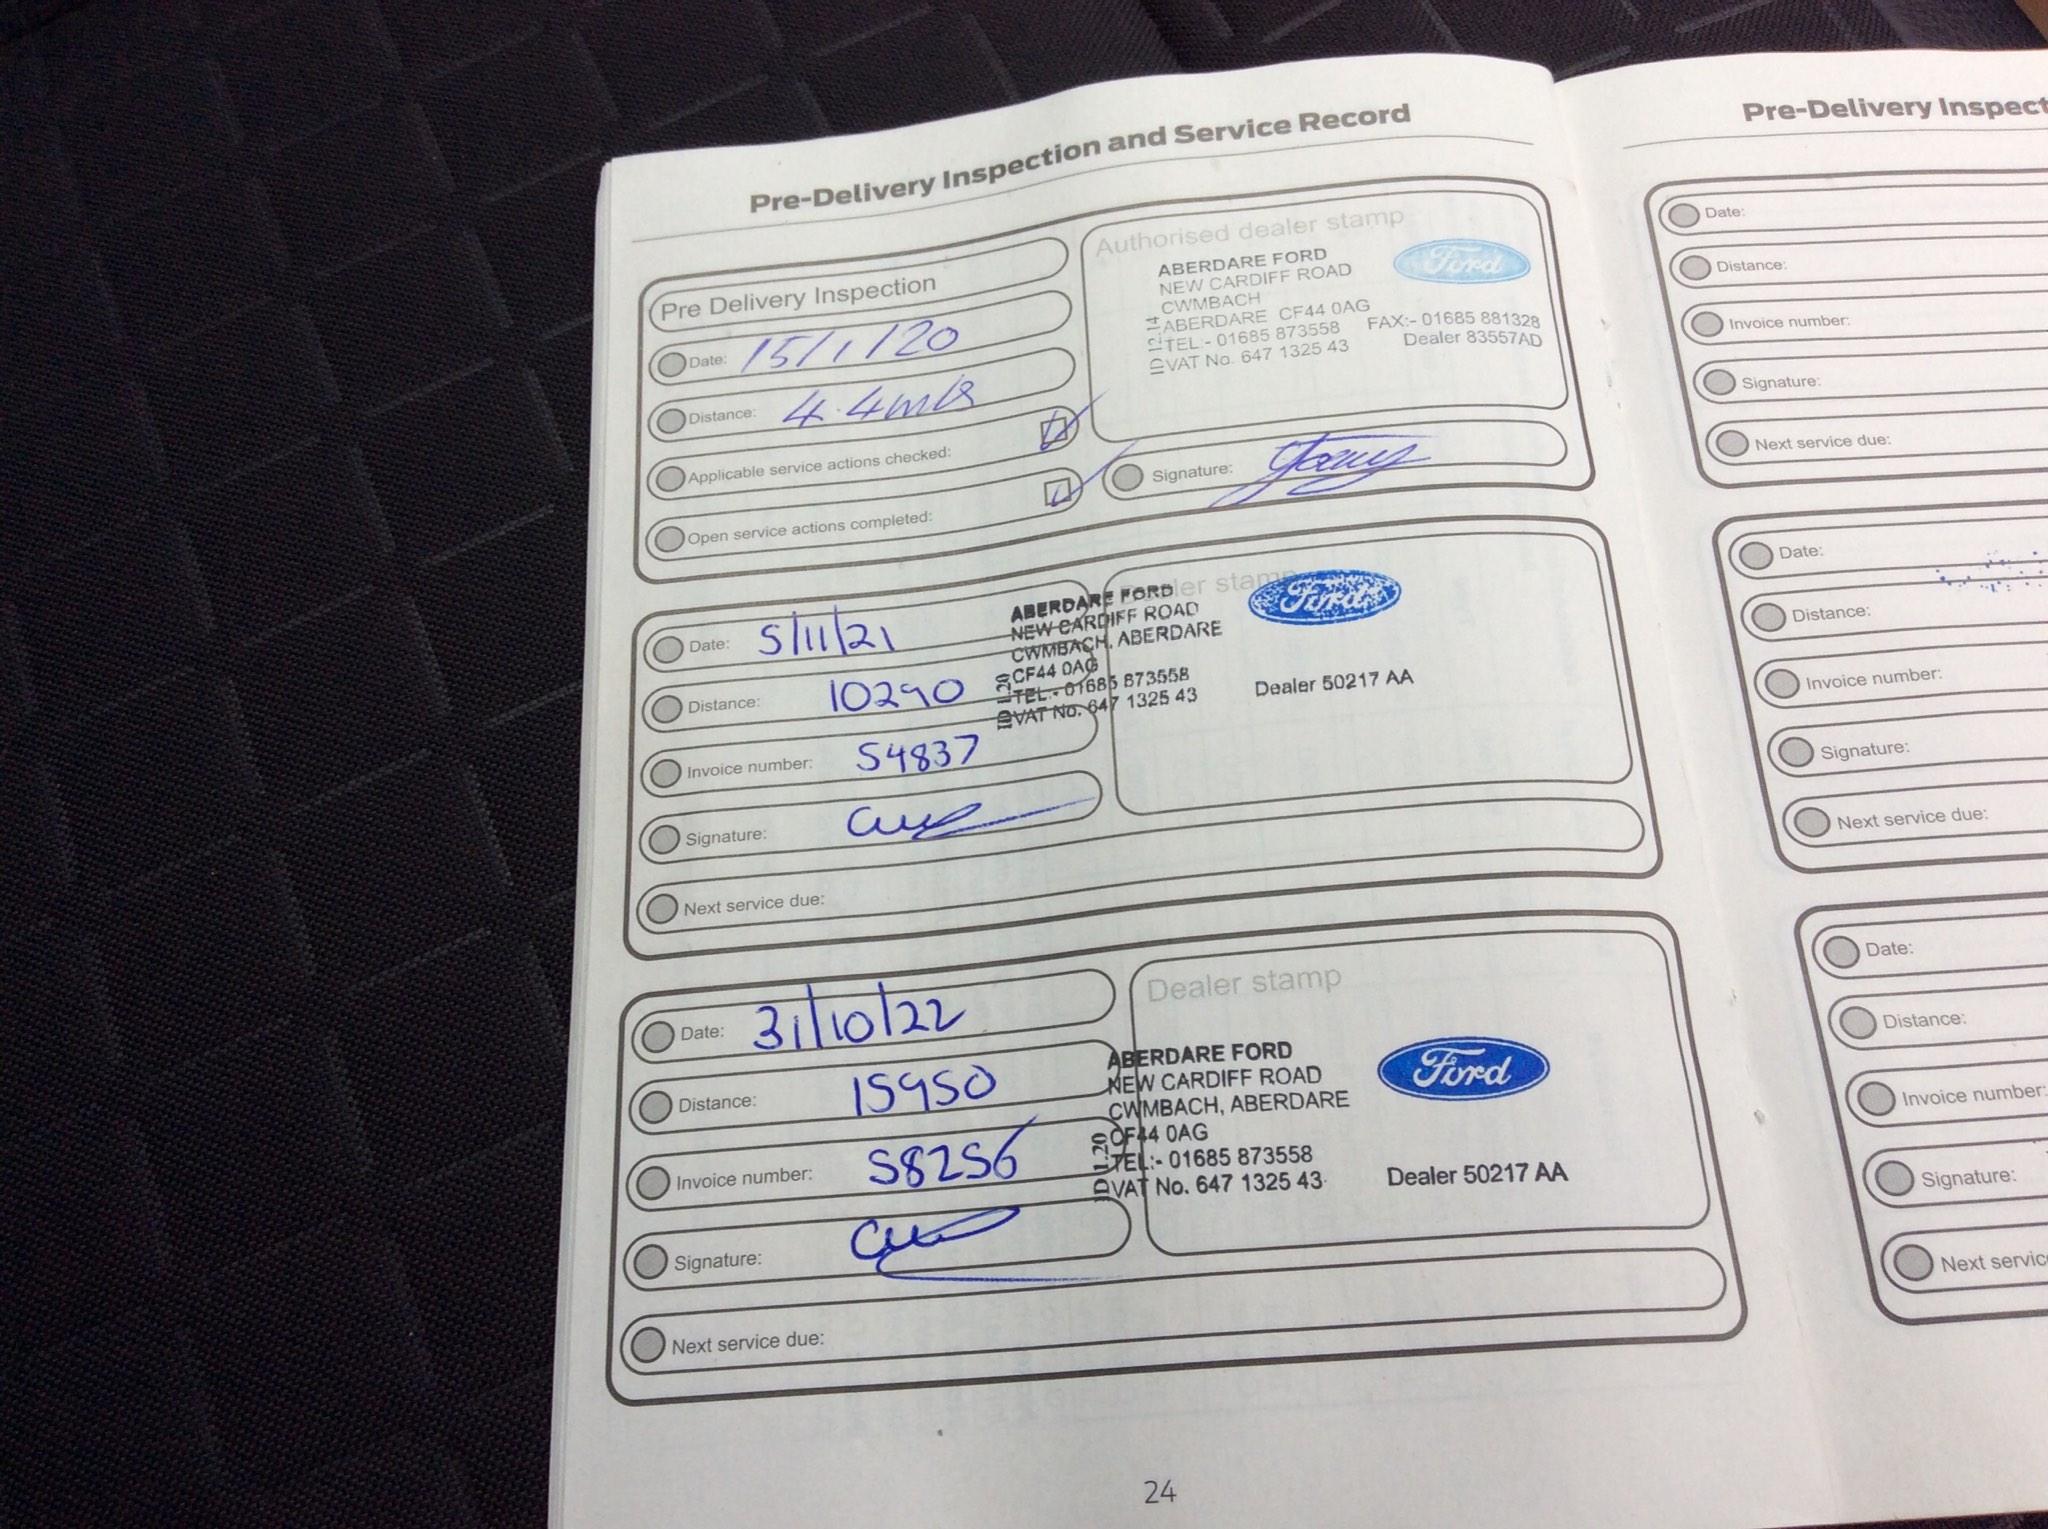 Pre-Delivery Inspection and Service Record
Pre Delivery Inspection
Date: 15/1/20
Distance: 4.4mls
Applicable service actions checked:
Open service actions completed:
Authorised dealer stamp
Ford
ABERDARE FORD
NEW CARDIFF ROAD
CWMBACH
ABERDARE CF44 0AG
TEL:- 01685 873558 FAX:- 01685 881328
VAT No. 647 1325 43 Dealer 83557AD
Signature:
Date: 5/11/21
Distance: 10290
Invoice number: 54837
Signature:
Next service due:
Dealer stamp
Ford
ABERDARE FORD
NEW CARDIFF ROAD
CWMBACH, ABERDARE
CF44 0AG
TEL:- 01685 873558
VAT No. 647 1325 43
Dealer 50217 AA
ID 1.20
Date: 31/10/22
Distance: 15950
Invoice number: 58256
Signature:
Next service due:
Dealer stamp
Ford
ABERDARE FORD
NEW CARDIFF ROAD
CWMBACH, ABERDARE
CF44 0AG
TEL:- 01685 873558
VAT No. 647 1325 43
Dealer 50217 AA
ID 1.20
24
Pre-Delivery Inspect
Date:
Distance:
Invoice number:
Signature:
Next service due:
Date:
Distance:
Invoice number:
Signature:
Next service due:
Date:
Distance:
Invoice number:
Signature:
Next servic